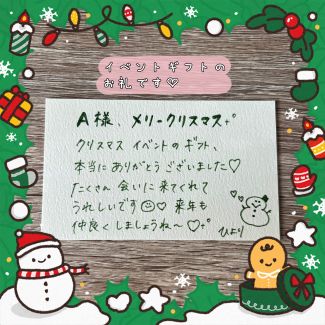 イベントギフトの
お礼です♡
A様、メリークリスマス
クリスマス イベントのギフト、
本当にありがとうございました♡
たくさん会いに来てくれて
うれしいです☺♡ 来年も
仲良くしましょうね〜♡
ひより